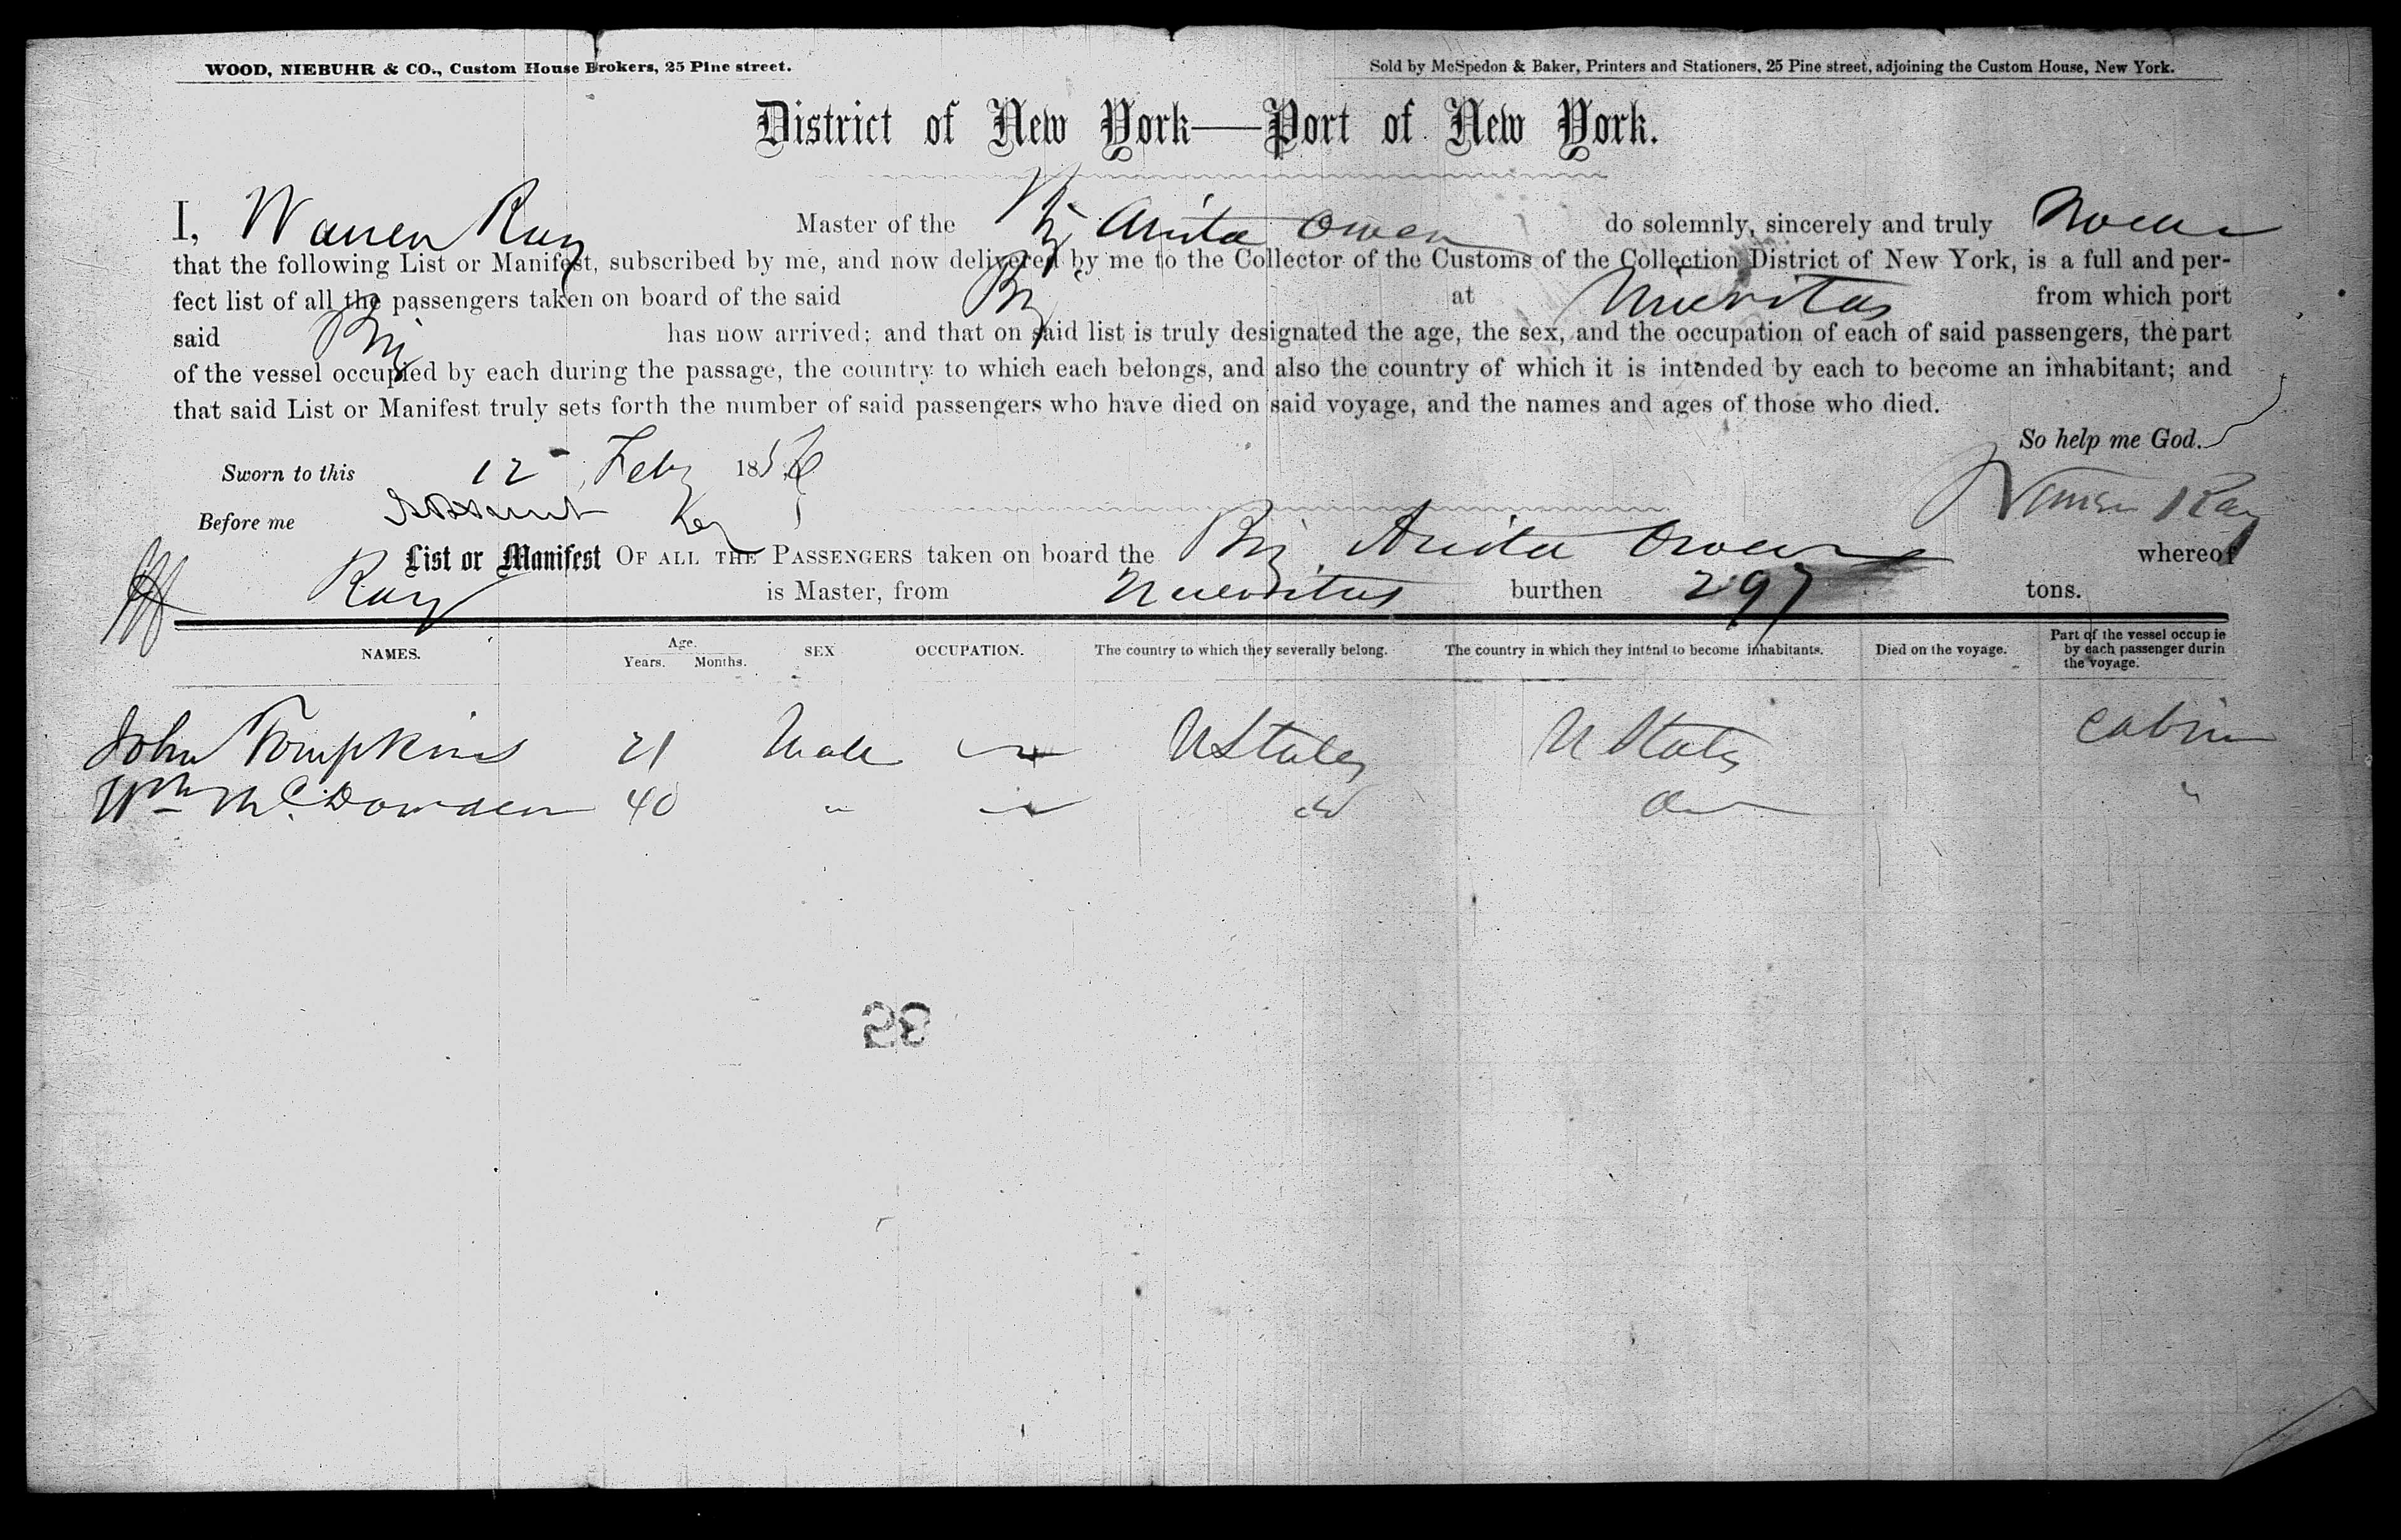 WOOD, NIEBUHR & CO., Custom House Brokers, 25 Pine street.
Sold by McSpedon & Baker, Printers and Stationers, 25 Pine street, adjoining the Custom House, New York.
District of New York—Port of New York.
I, Warren Ray Master of the Brig Anita Owen do solemnly, sincerely and truly swear
that the following List or Manifest, subscribed by me, and now delivered by me to the Collector of the Customs of the Collection District of New York, is a full and per-
fect list of all the passengers taken on board of the said Brig at Nuevitas from which port
said Brig has now arrived; and that on said list is truly designated the age, the sex, and the occupation of each of said passengers, the part
of the vessel occupied by each during the passage, the country to which each belongs, and also the country of which it is intended by each to become an inhabitant; and
that said List or Manifest truly sets forth the number of said passengers who have died on said voyage, and the names and ages of those who died.
So help me God.
Sworn to this 12 Feby 1856
Warren Ray
Before me
List or Manifest OF ALL THE PASSENGERS taken on board the Brig Anita Owen whereof
Ray is Master, from Nuevitas burthen 297 tons.
NAMES. Age. Years. Months. SEX OCCUPATION. The country to which they severally belong. The country in which they intend to become inhabitants. Died on the voyage. Part of the vessel occup ie by each passenger durin the voyage.
John Tompkins 21 Male U States U States Cabin
Wm McDowden 40 " do Do "
28